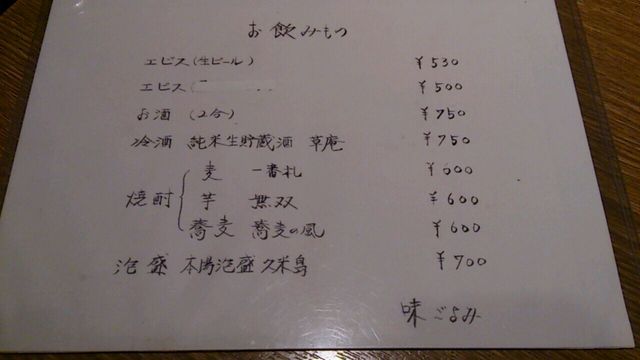 お飲みもの
エビス(生ビール) ¥530
エビス( ¥500
お酒 (2合) ¥750
冷酒 純米生貯蔵酒 草庵 ¥750
焼酎 麦 一番札 ¥600
芋 無双 ¥600
蕎麦 蕎麦の風 ¥600
泡盛 本場泡盛 久米島 ¥700
味ごよみ